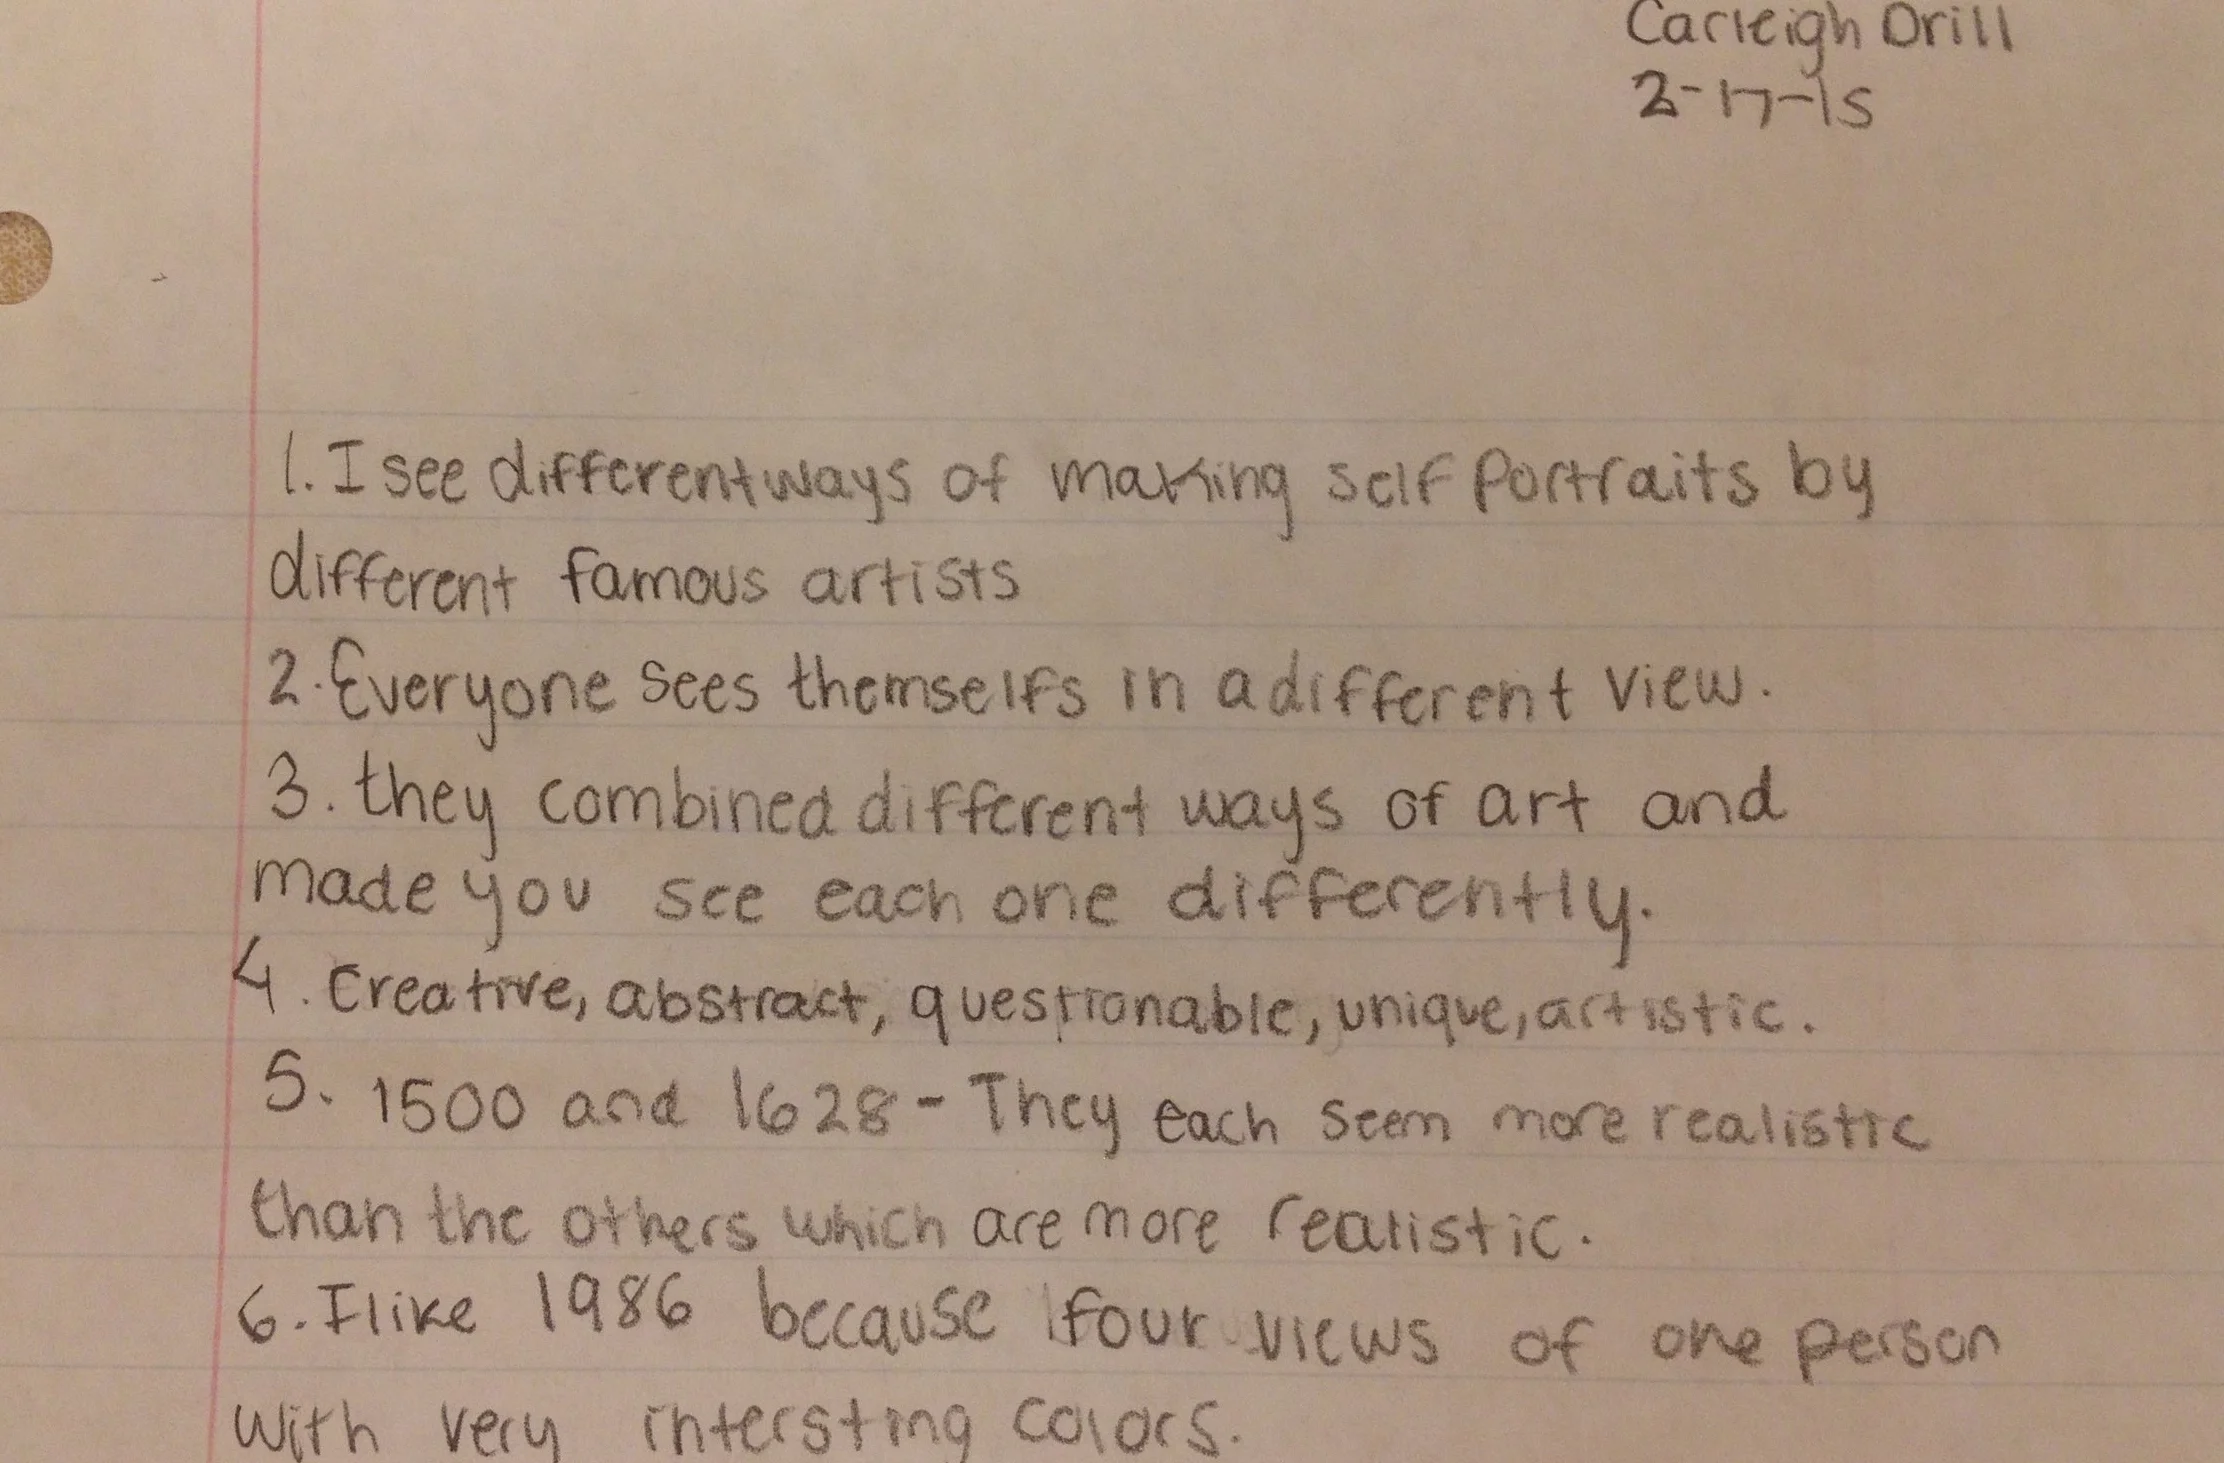 Carleigh Drill
2-17-15
1. I see different ways of making self portraits by
different famous artists
2. Everyone sees themselfs in a different view.
3. they combined different ways of art and
made you see each one differently.
4. Creative, abstract, questionable, unique, artistic.
5. 1500 and 1628 - They each seem more realistic
than the others which are more realistic.
6. I like 1986 because four views of one person
with very intersting colors.